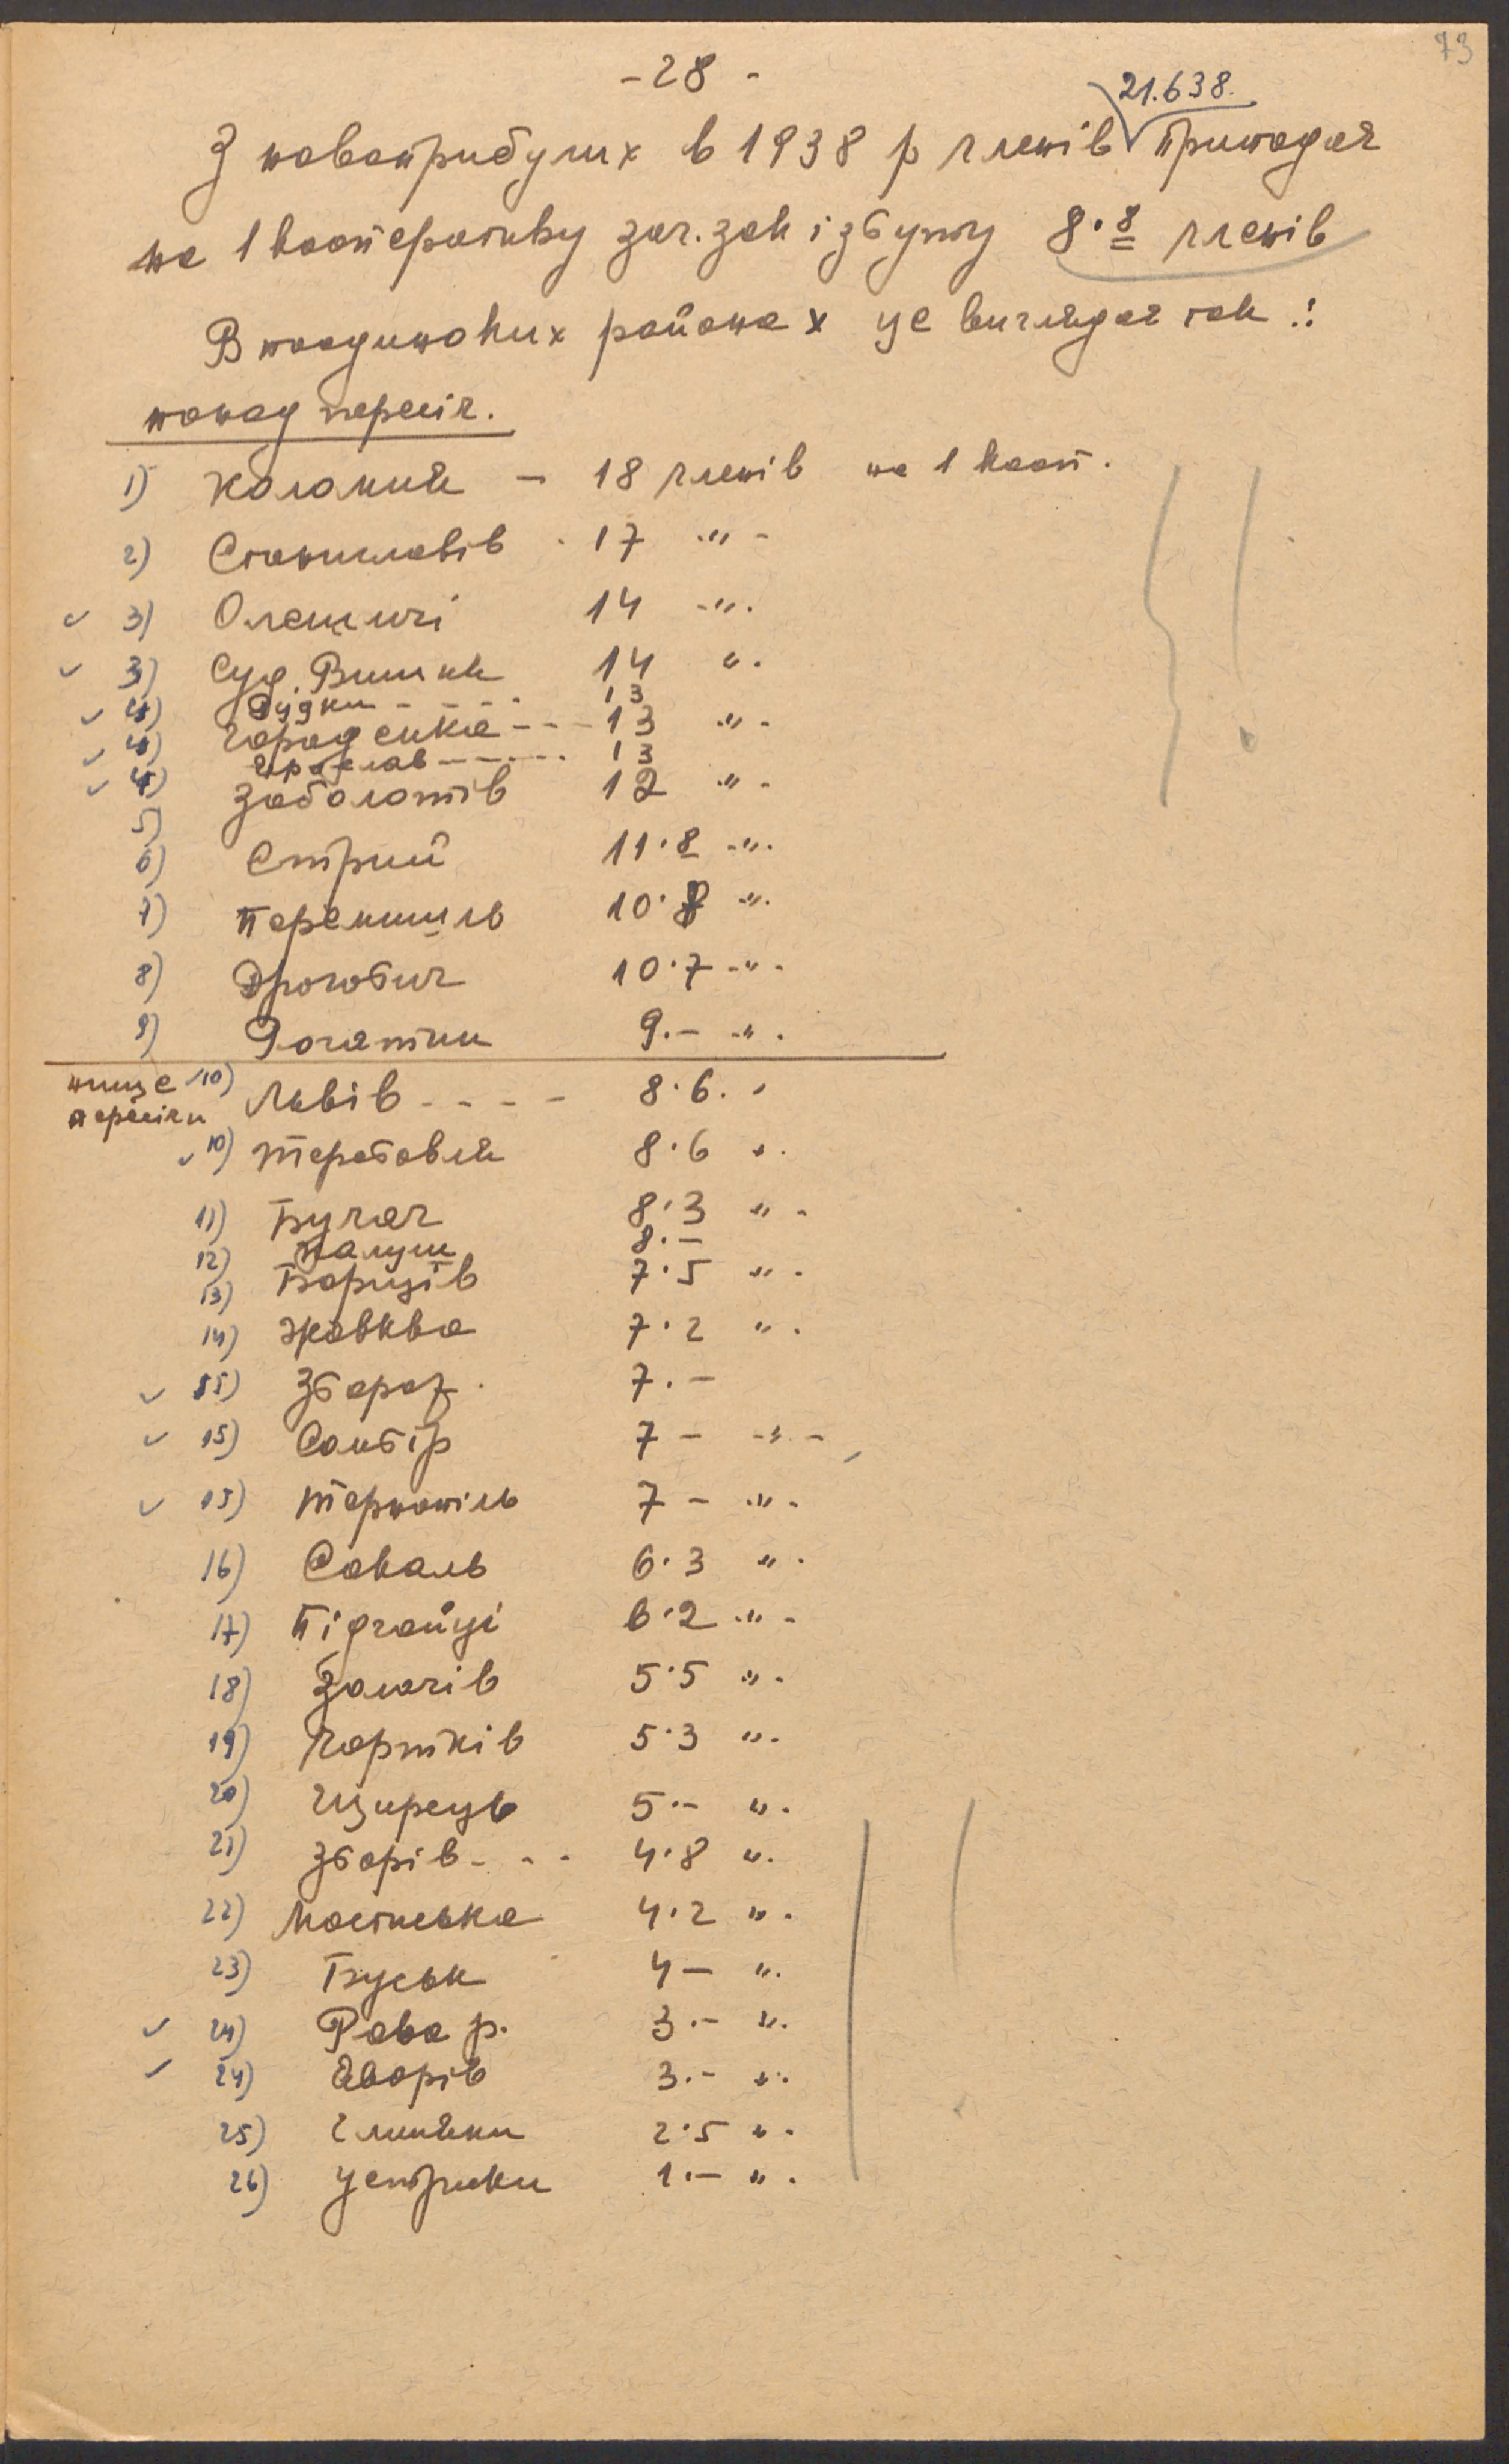 73
- 28 -
21.638.
З новоприбулих в 1938 р членів припадає
на 1 кооперативу заг. зак і збуту 8.8 членів
В поодиноких районах це виглядає так :
понад пересіч.
1) Коломия – 18 членів на 1 кооп.
2) Станиславів - 17 -"-
3) Олешичі 14 -"-
3) Суд. Вишня 14 "-
4) Рудки - - - - 13
4) Городенка - - - 13 "-
4) Ярослав - - - - - 13
5) Заболотів 12 -"-
6) Стрий 11.8 -"-
7) Перемишль 10.8 -"-
8) Дрогобич 10.7 -"-
9) Рогатин 9.– -"-
нище пересічи
10) Львів - - - - 8.6. "
10) Теребовля 8.6 "-
11) Бучач 8.3 "-
12) Калуш 8.–
13) Борщів 7.5 "-
14) Жовква 7.2 "-
15) Збараж. 7.–
15) Самбір 7 – -"-
15) Тернопіль 7 – -"-
16) Сокаль 6.3 "-
17) Підгайці 6.2 -"-
18) Золочів 5.5 "-
19) Чортків 5.3 "-
20) Щирець 5.– "-
21) Зборів - - - 4.8 "-
22) Мостиська 4.2 "-
23) Буськ 4 – "-
24) Рава р. 3.– "-
24) Яворів 3.– "-
25) Глиняни 2.5 "-
26) Устрики 1.– "-